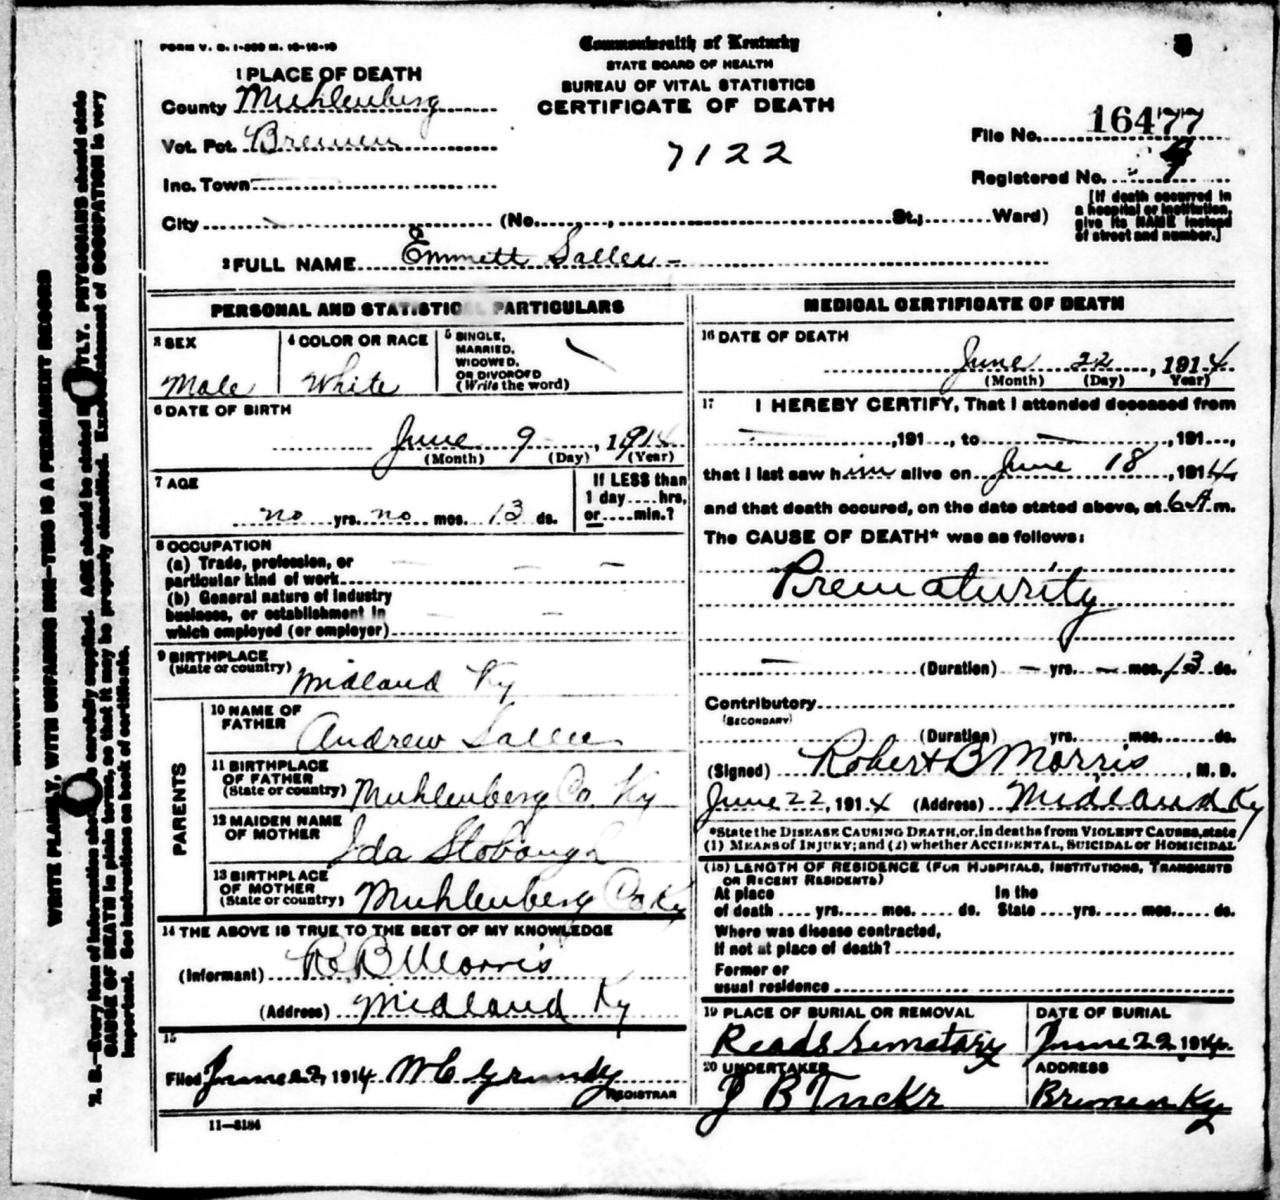 FORM V. S. 1-500 M. 10-18-10
Commonwealth of Kentucky
STATE BOARD OF HEALTH
BUREAU OF VITAL STATISTICS
CERTIFICATE OF DEATH
7122
1 PLACE OF DEATH
County Muhlenberg
Vot. Pct. Bremen
Inc. Town
City (No. St.; Ward)
File No. 16477
Registered No. 9
[If death occurred in
a hospital or institution,
give its NAME instead
of street and number.]
2 FULL NAME Emmett Sallee
PERSONAL AND STATISTICAL PARTICULARS
3 SEX
Male
4 COLOR OR RACE
White
5 SINGLE,
MARRIED,
WIDOWED,
OR DIVORCED
(Write the word)
6 DATE OF BIRTH
June 9, 1914
(Month) (Day) (Year)
7 AGE
no yrs. no mos. 13 ds.
If LESS than
1 day....hrs,
or....min.?
8 OCCUPATION
(a) Trade, profession, or
particular kind of work
(b) General nature of industry
business, or establishment in
which employed (or employer)
9 BIRTHPLACE
(State or country) Midland Ky
PARENTS
10 NAME OF
FATHER Andrew Sallee
11 BIRTHPLACE
OF FATHER
(State or country) Muhlenberg Co. Ky
12 MAIDEN NAME
OF MOTHER Ida Slobough
13 BIRTHPLACE
OF MOTHER
(State or country) Muhlenberg Co Ky
14 THE ABOVE IS TRUE TO THE BEST OF MY KNOWLEDGE
(Informant) R B Morris
(Address) Midland Ky
15
Filed June 22, 1914 W C Grundy
REGISTRAR
11-3184
MEDICAL CERTIFICATE OF DEATH
16 DATE OF DEATH
June 22, 1914
(Month) (Day) Year)
17 I HEREBY CERTIFY, That I attended deceased from
,191...., to ,191....,
that I last saw him alive on June 18, 1914
and that death occured, on the date stated above, at 6 A m.
The CAUSE OF DEATH* was as follows:
Prematurity
(Duration) yrs. mos. 13 ds.
Contributory
(SECONDARY)
(Duration) yrs. mos. ds.
(Signed) Robert B Morris, M. D.
June 22, 1914 (Address) Midland Ky
*State the DISEASE CAUSING DEATH, or, in deaths from VIOLENT CAUSES, state
(1) MEANS of INJURY; and (2) whether ACCIDENTAL, SUICIDAL or HOMICIDAL
(18) LENGTH OF RESIDENCE (FOR HOSPITALS, INSTITUTIONS, TRANSIENTS
OR RECENT RESIDENTS)
At place In the
of death .... yrs..... mos..... ds. State ....yrs..... mos..... ds.
Where was disease contracted,
If not at place of death?
Former or
usual residence
19 PLACE OF BURIAL OR REMOVAL
Reads Semetary
DATE OF BURIAL
June 22 1914.
20 UNDERTAKER
J B Tuckr
ADDRESS
Bremen Ky
WRITE PLAINLY, WITH UNFADING INK—THIS IS A PERMANENT RECORD
N. B.—Every item of information should be carefully supplied. AGE should be stated EXACTLY. PHYSICIANS should state
CAUSE OF DEATH in plain terms, so that it may be properly classified. Exact statement of OCCUPATION is very
important. See instructions on back of certificate.